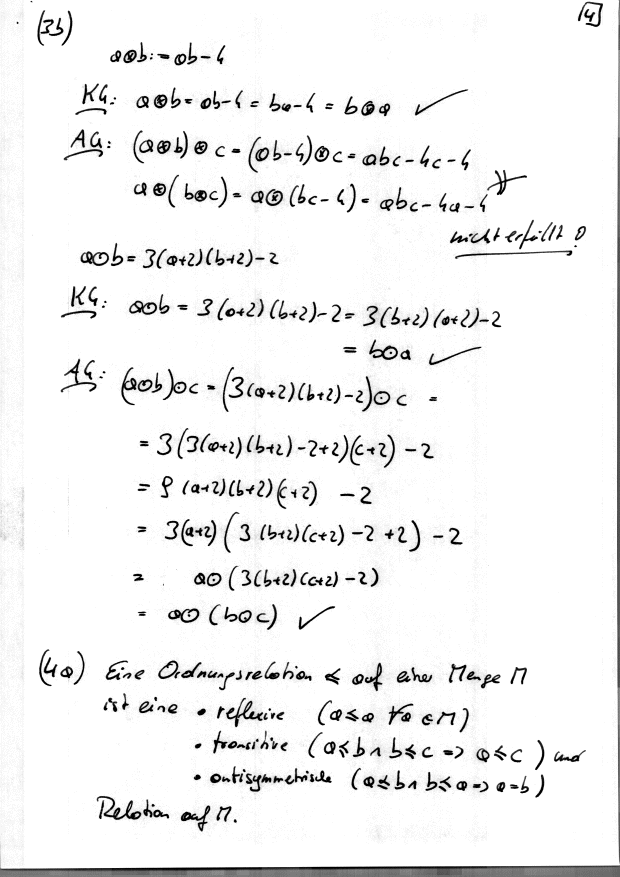 (3b) 4
a⊛b := ab-4
KG: a⊛b = ab-4 = ba-4 = b⊛a ✓
AG: (a⊛b)⊛c = (ab-4)⊛c = abc-4c-4
a⊛(b⊛c) = a⊛(bc-4) = abc-4a-4
nicht erfüllt!
a⊙b = 3(a+2)(b+2)-2
KG: a⊙b = 3(a+2)(b+2)-2 = 3(b+2)(a+2)-2
= b⊙a ✓
AG: (a⊙b)⊙c = (3(a+2)(b+2)-2)⊙c =
= 3(3(a+2)(b+2)-2+2)(c+2) -2
= 9 (a+2)(b+2)(c+2) -2
= 3(a+2)(3(b+2)(c+2)-2+2) -2
= a⊙(3(b+2)(c+2)-2)
= a⊙(b⊙c) ✓
(4a) Eine Ordnungsrelation ≤ auf einer Menge M
ist eine • reflexive (a≤a ∀a∈M)
• transitive (a≤b ∧ b≤c => a≤c) und
• antisymmetrische (a≤b ∧ b≤a => a=b)
Relation auf M.